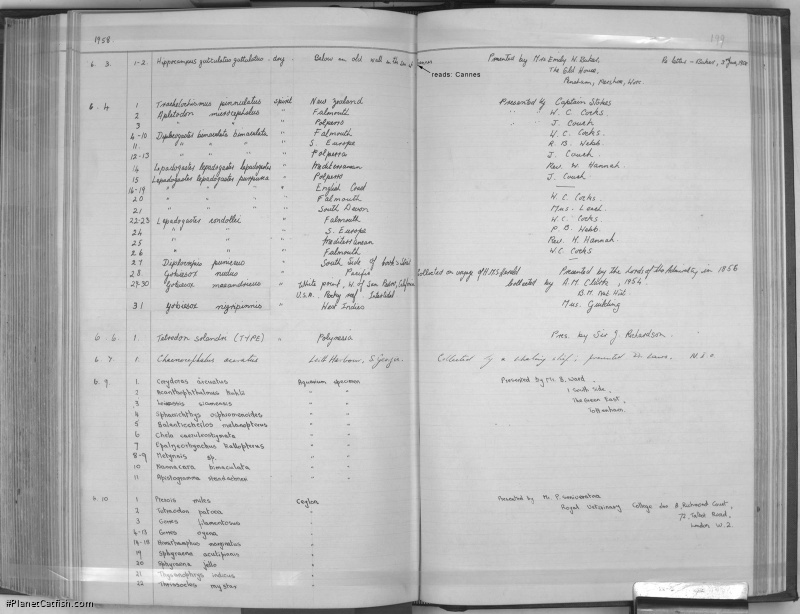 1958
199
6. 3. 1-2. Hippocampus guttulatus guttulatus - dry. Below an old wall in the sea at Presented by Mrs Emily H. Baker. Re letters - Baker, 3rd June, 1958
reads: Cannes
The Old House,
Pensham, Pershore, Worc.
6. 4 1 Trachelochismus pinnulatus spirit New Zealand Presented by Captain Stokes
2 Apletodon microcephalus " Falmouth " " W. C. Cocks
3 " " " Polperro " " J. Couch
4-10 Diplecogaster bimaculata bimaculata " Falmouth W. C. Cocks.
11. " " " " S. Europe R. B. Webb.
12-13 " " " " Polperro J. Couch
14 Lepadogaster lepadogaster lepadogaster " Mediterranean Rev. W. Hannah.
15 Lepadogaster lepadogaster purpurea " Polperro J. Couch.
16-19 " " " " English Coast —
20 " " " " Falmouth W. C. Cocks
21 " " " " South Devon Mus. Leach.
22-23 Lepadogaster candollei " Falmouth W. C. Cocks
24 " " " S. Europe P. B. Webb.
25 " " " Mediterranean Rev. H. Hannah.
26 " " " Falmouth W. C. Cocks
27 Diplocrepis puniceus " South Side of Cook's Strait —
28. Gobiesox nudus " Pacific Collected on voyage of H.M.S. Herald Presented by the Lords of the Admiralty in 1856
29-30 Gobiesox maeandricus " White point, W. of San Pedro, California Collected by A.M. Clarke, 1954,
U.S.A. Rocky reef Intertidal B.M. Nat. Hist.
31 Gobiesox nigripinnis " West Indies Mus. Guilding
6. 6. 1. Tetrodon solandri (TYPE) " Polynesia Pres. by Sir J. Richardson.
6. 7. 1. Chaenocephalus aceratus Leith Harbour, S. Georgia. Collected by a whaling ship, presented
6. 9. 1. Corydoras arcuatus Aquarium specimen Presented by Mr. B. Ward,
2 Acanthophthalmus kuhli " " 1 South Side,
3 siamensis " " The Green East,
4 Sphaerichthys osphromenoides " " Tottenham.
5 Balantiocheilos melanopterus " "
6 Chela caeruleostigmata " "
7 Epalzeorhynchus kallopterus " "
8-9 Metynnis sp. " "
10 Nannacara bimaculata " "
11 Apistogramma steindachneri " "
6. 10 1 Pterois miles Ceylon Presented by Mr. P. Senivaratna
2 Tetraodon patoca " Royal Veterinary College
3 Gerres filamentosus " 72, Talbot Road,
Gerres oyena " London W.2.
Hemirhamphus marginatus "
19 Sphyraena acutipinnis "
20 Sphyraena jello "
21 Thysanophrys indicus "
22 Thrissocles mystax "
#PlanetCatfish.com